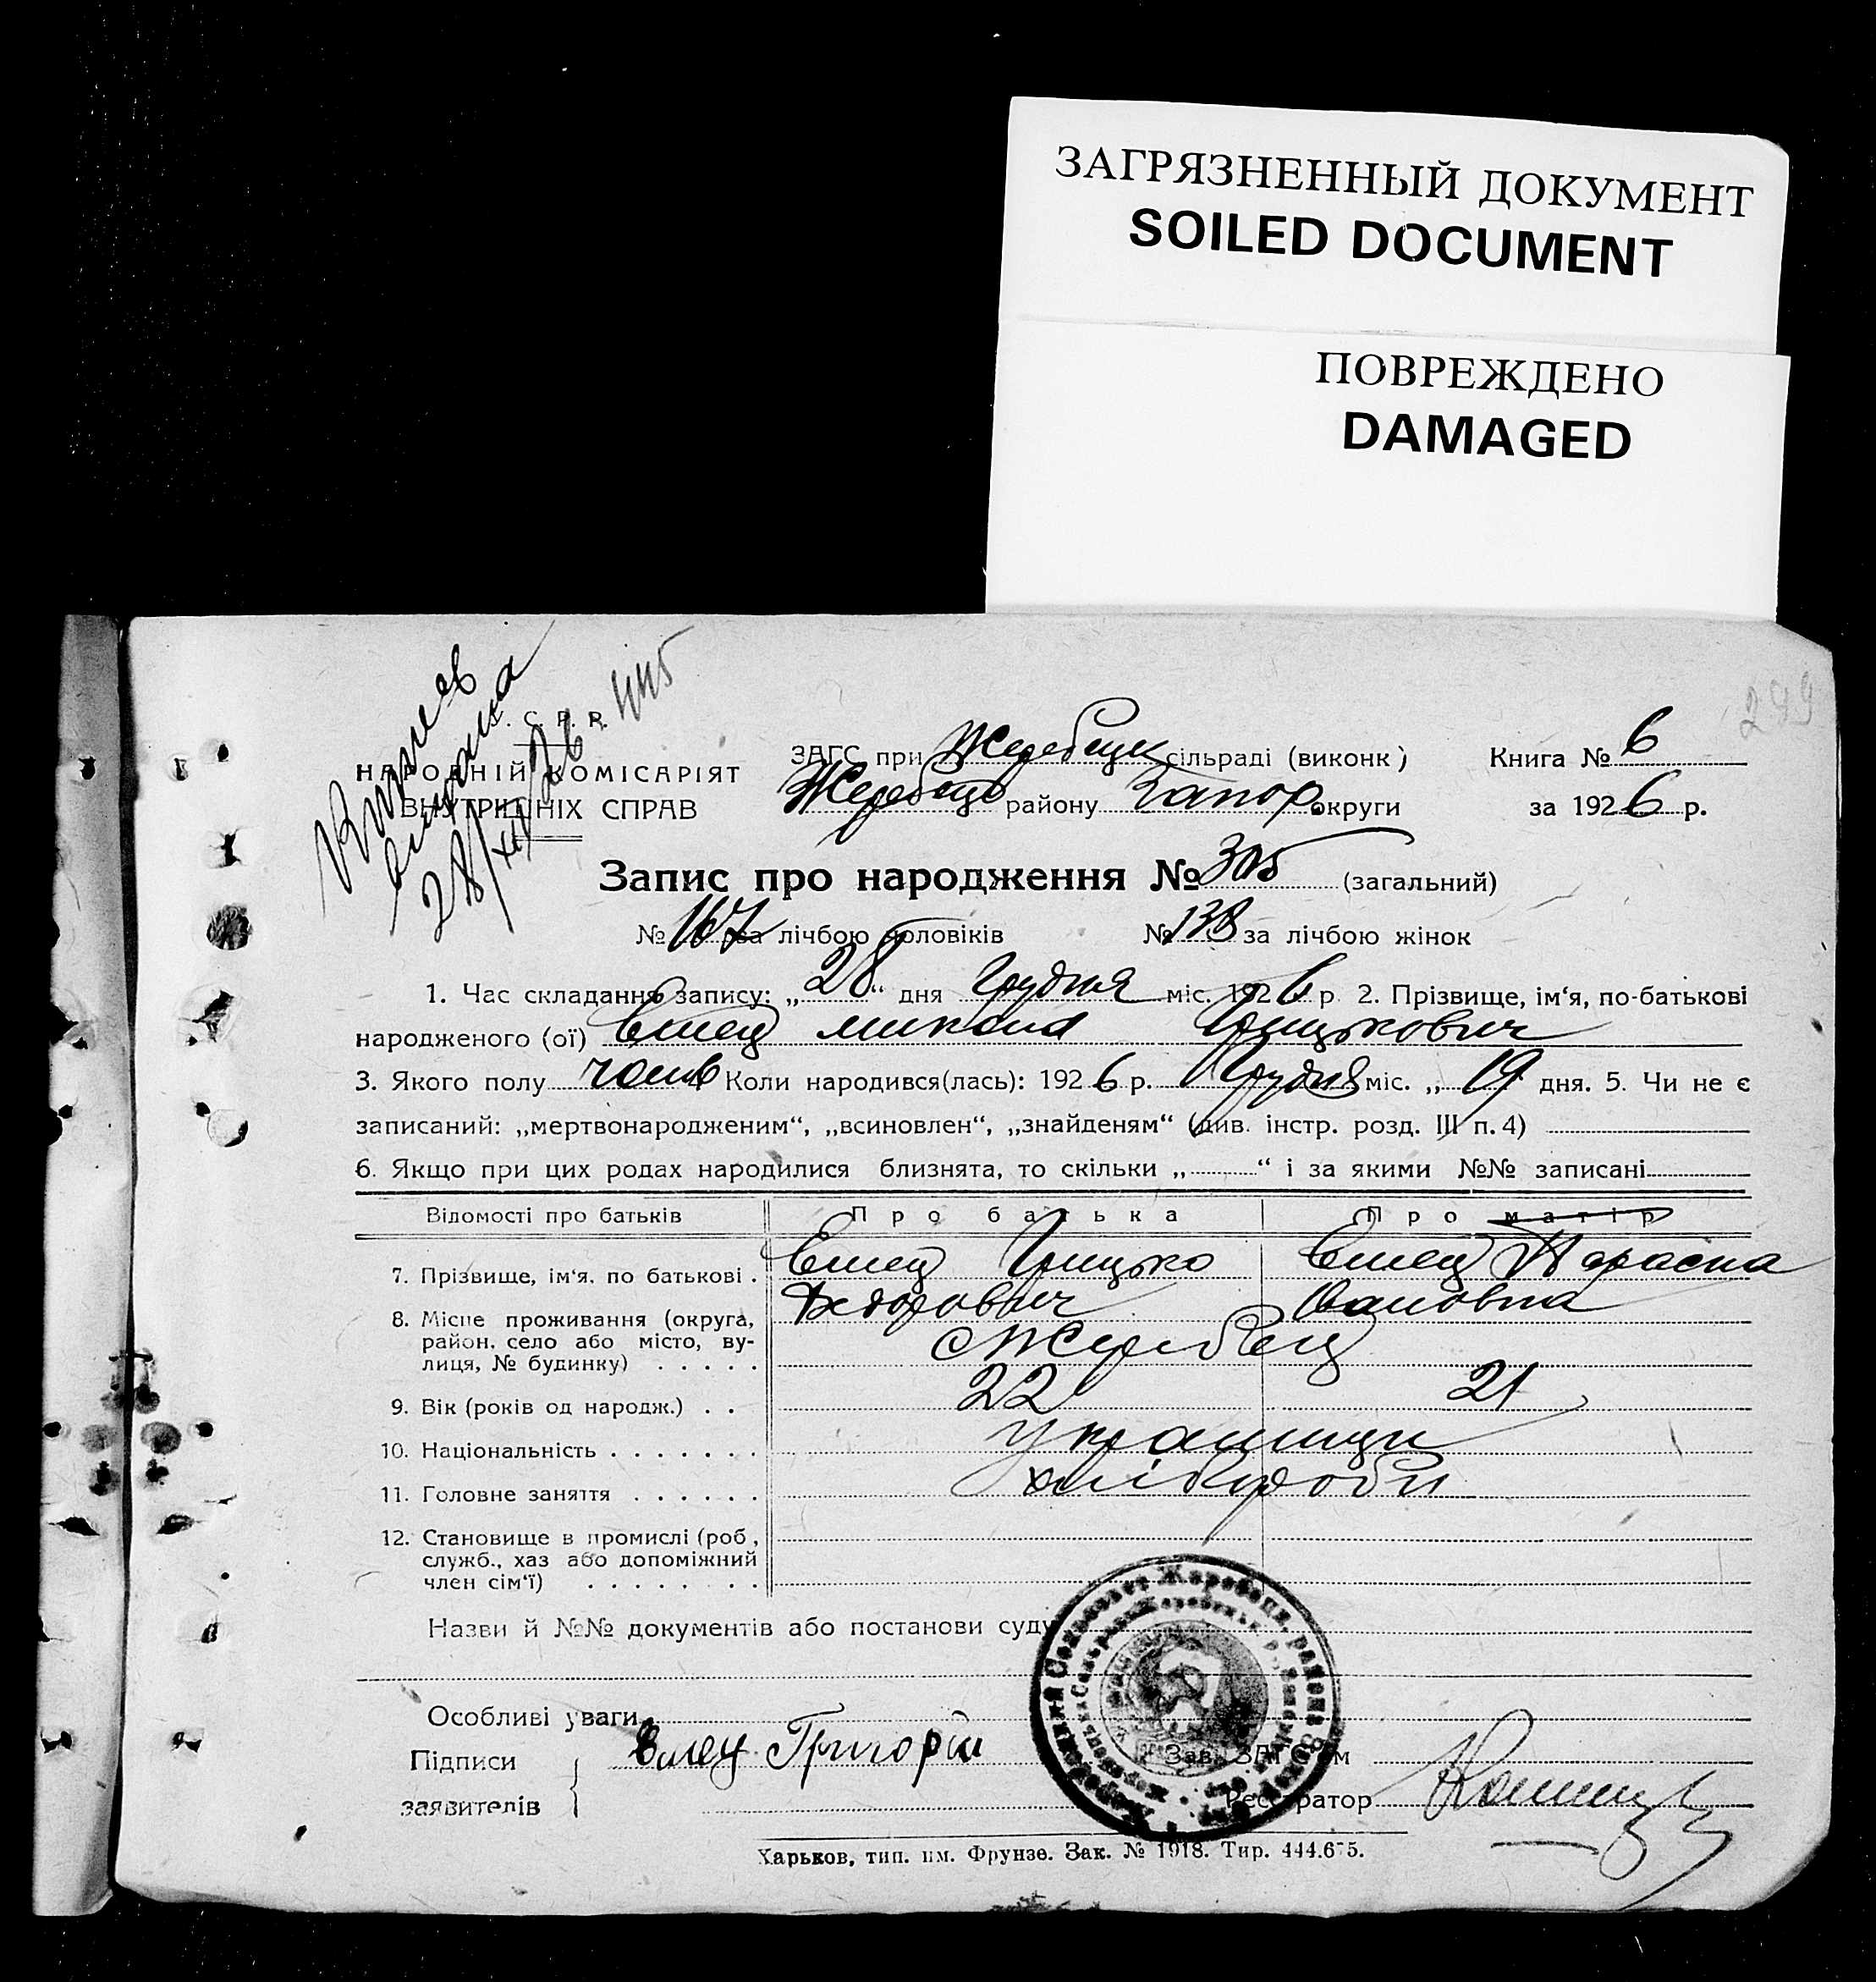 ЗАГРЯЗНЕННЫЙ ДОКУМЕНТ
SOILED DOCUMENT
ПОВРЕЖДЕНО
DAMAGED
299
28/XII 26
С. Р. Р.
НАРОДНІЙ КОМІСАРІЯТ
ВНУТРІШНІХ СПРАВ
ЗАГС при Жеребецк сільраді (виконк)
Жеребецьк району Запор. округи
Книга № 6
за 1926 р.
Запис про народження № 305 (загальний)
№ 167 за лічбою чоловіків № 138 за лічбою жінок
1. Час складання запису: „28“ дня Грудня міс. 1926 р. 2. Прізвище, ім‘я, по-батькові
народженого (ої) Ємец Микола Грицькович
3. Якого полу чолов Коли народився(лась): 1926 р. Грудня міс. „ 19 дня. 5. Чи не є
записаний: „мертвонародженим“, „всиновлен“, „знайденям“ (див. інстр. розд. III п. 4)
6. Якщо при цих родах народилися близнята, то скільки „ “ і за якими №№ записані
Відомості про батьків Про батька Про матір
7. Прізвище, ім‘я, по батькові . Ємец Грицько Ємец Параска
Федорович Івановна
8. Місце проживання (округа,
район, село або місто, ву-
лиця, № будинку) . . . . . с Жеребец
9. Вік (років од народж.) . . 22 21
10. Національність . . . . . . . Українци
11. Головне заняття . . . . . . хлібороби
12. Становище в промислі (роб,
служб., хаз або допоміжний
член сім‘ї) . . . . . . . .
Назви й №№ документів або постанови суду
Особливі уваги
Підписи
заявителів
Ємец Григорій
Зав. ЗАГС‘ом
Реєстратор
Харьков, тип. им. Фрунзе. Зак. № 1918. Тир. 444.675.